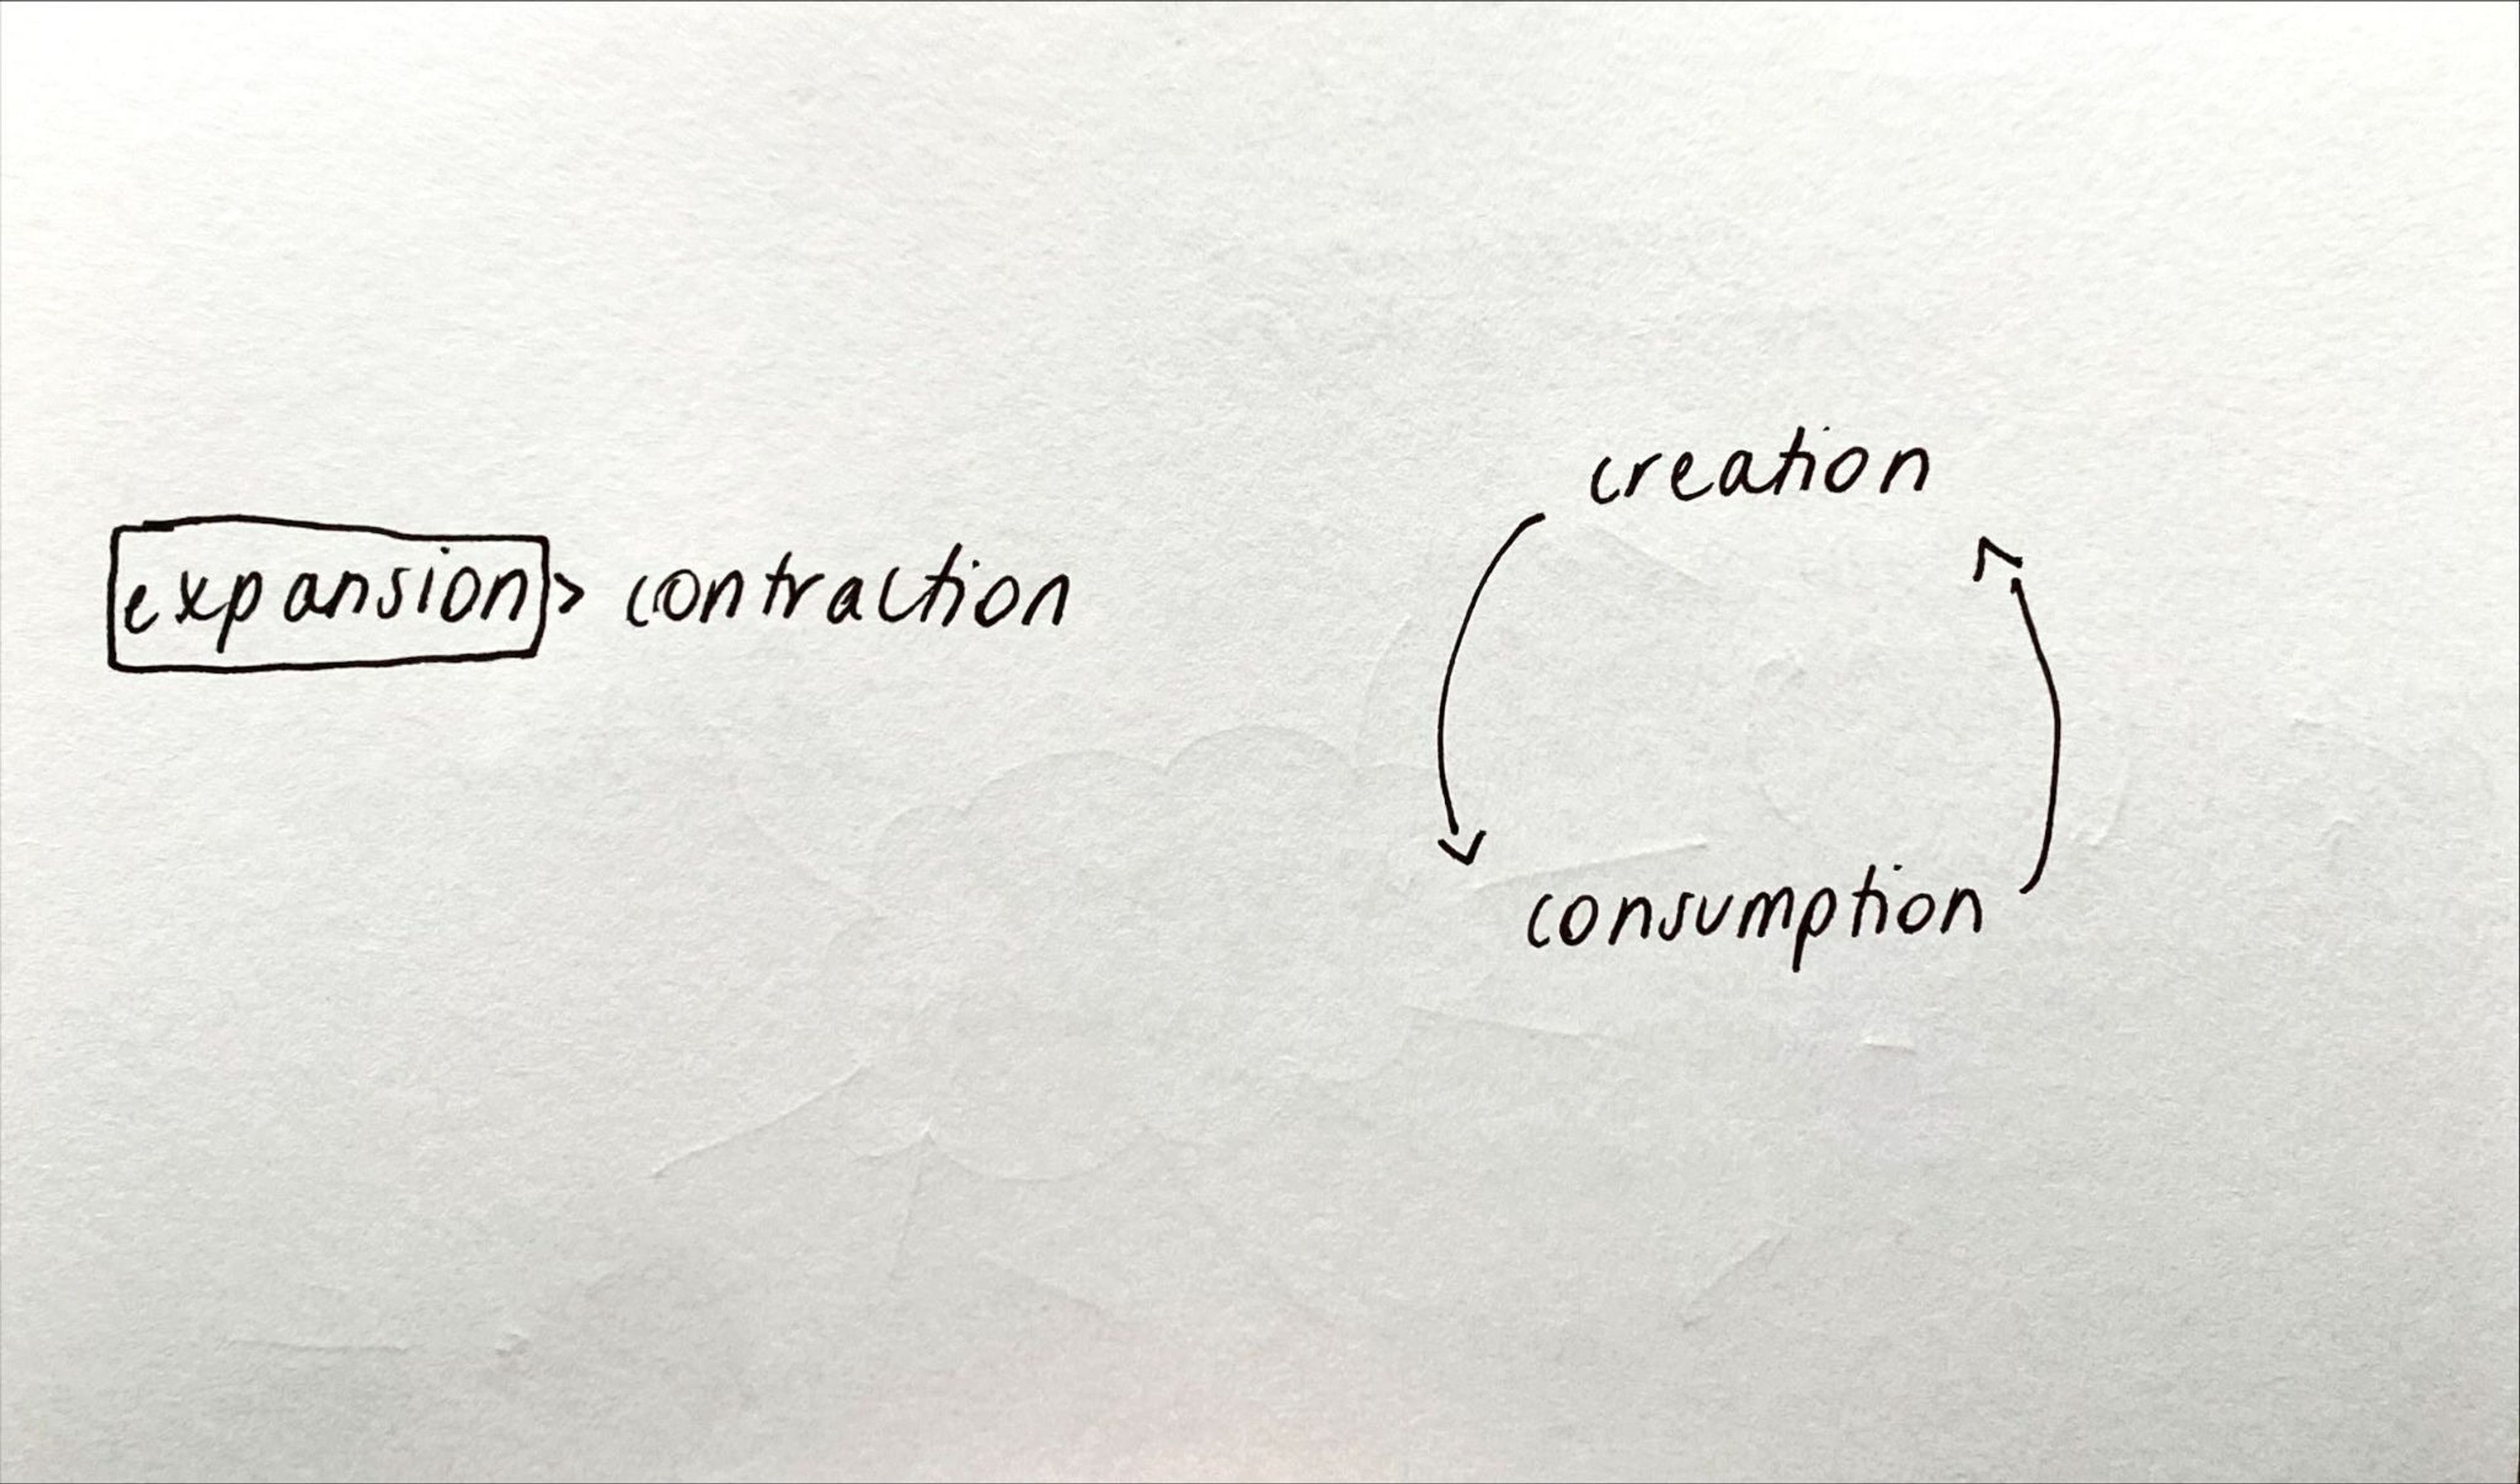 expansion > contraction
creation
consumption